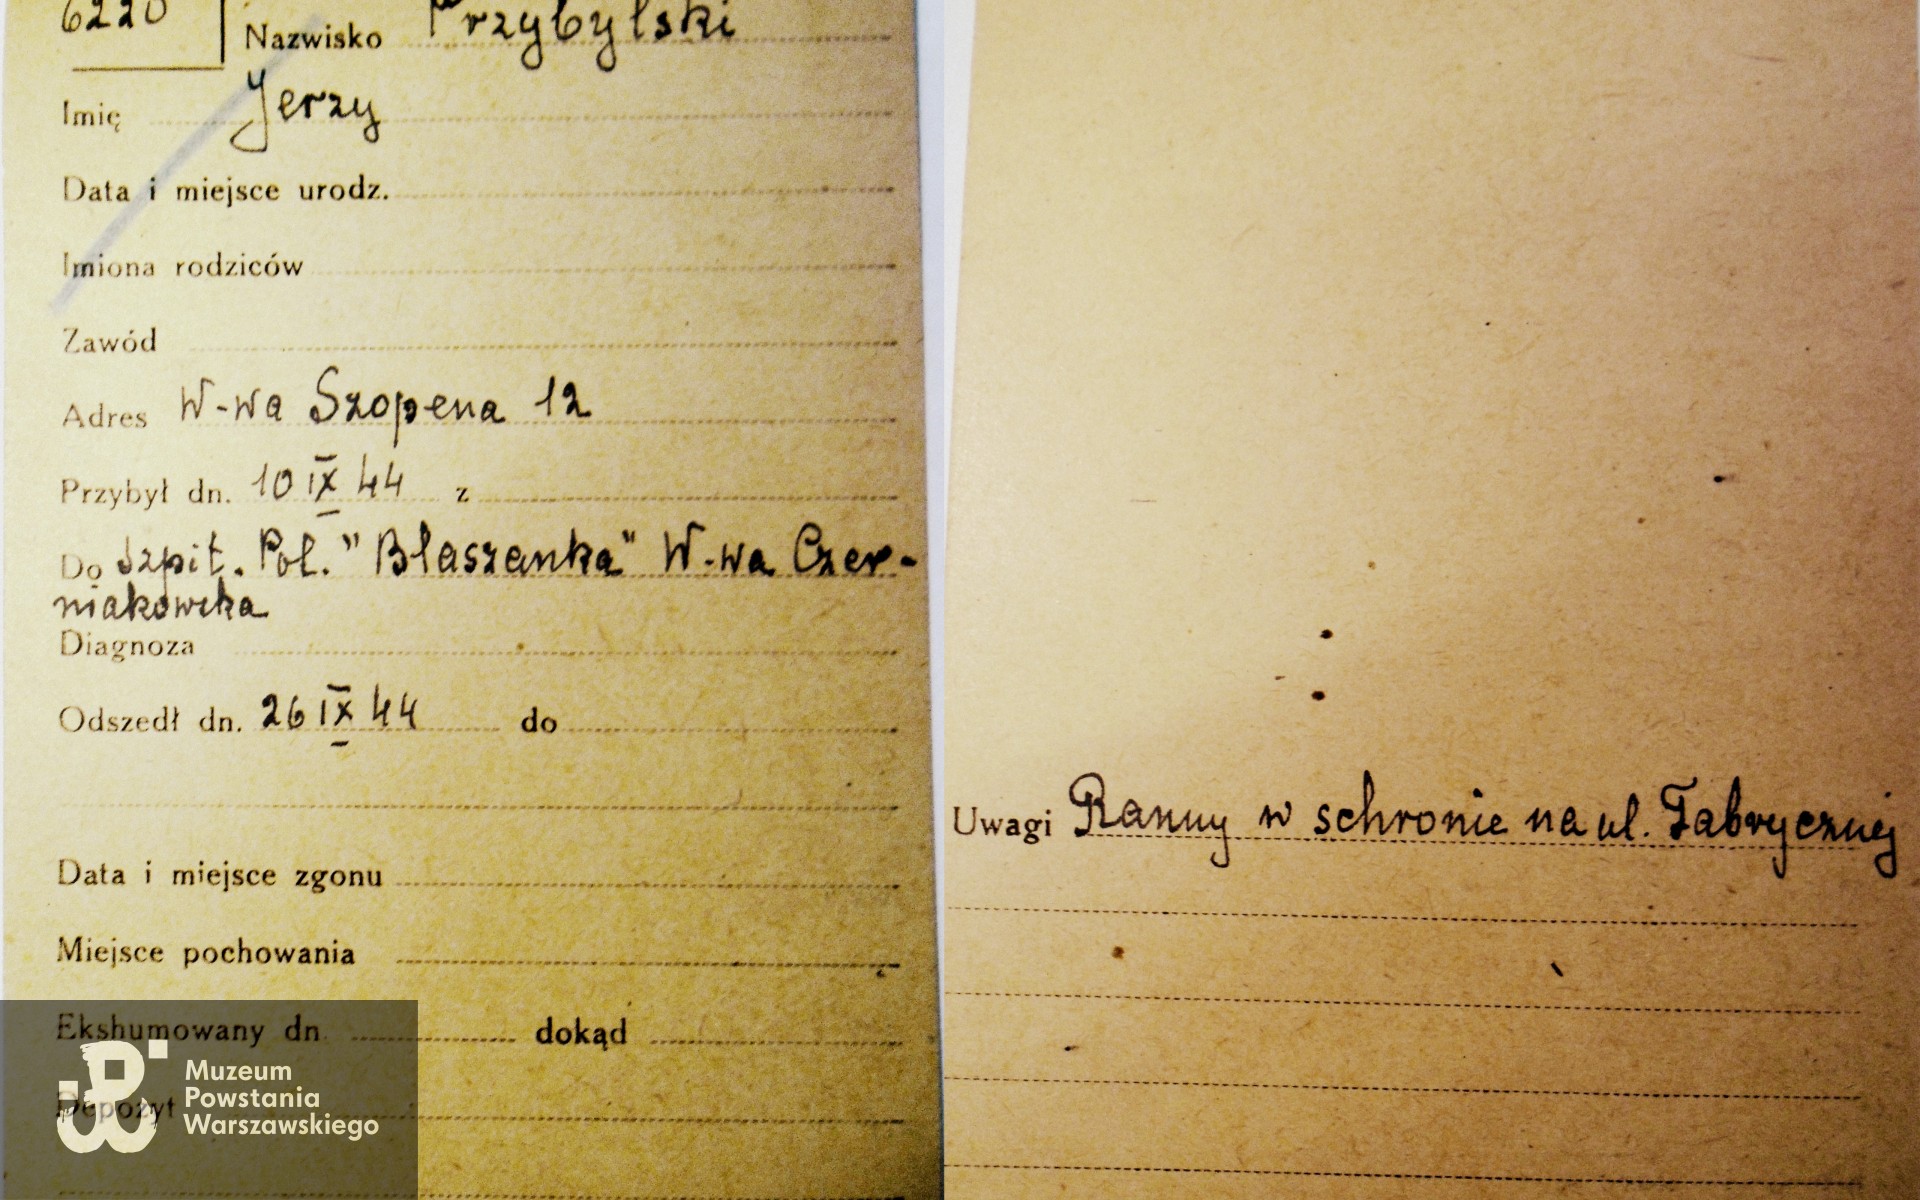 6220
Nazwisko Przybylski
Imię Jerzy
Data i miejsce urodz.
Imiona rodziców
Zawód
Adres W-wa Szopena 12
Przybył dn. 10 IX 44 z
Do Szpit. Pol. "Blaszanka" W-wa Czer-
niakowska
Diagnoza
Odszedł dn. 26 IX 44 do
Data i miejsce zgonu
Miejsce pochowania
Ekshumowany dn. dokąd
Depozyt
Muzeum
Powstania
Warszawskiego
Uwagi Ranny w schronie na ul. Fabrycznej